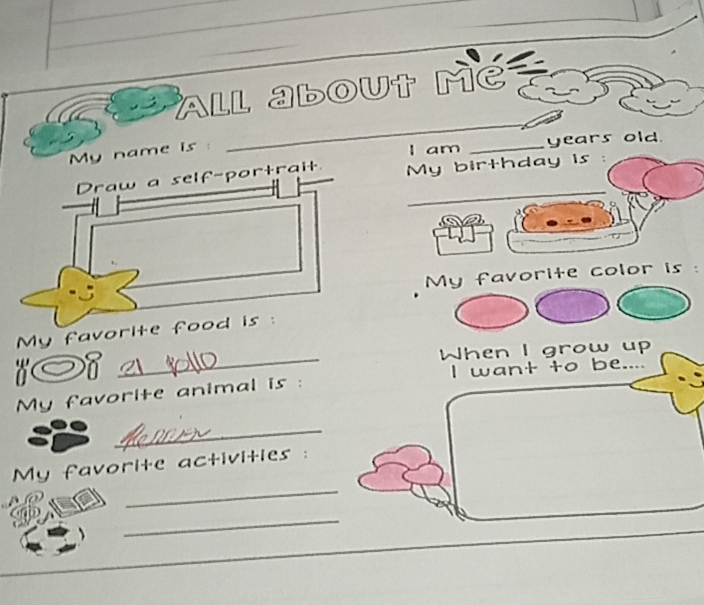 ALL about Me
My name is :
I am ______ years old.
Draw a self-portrait.
My birthday is :
My favorite color is :
My favorite food is :
El pollo
When I grow up
I want to be....
My favorite animal is :
My favorite activities :